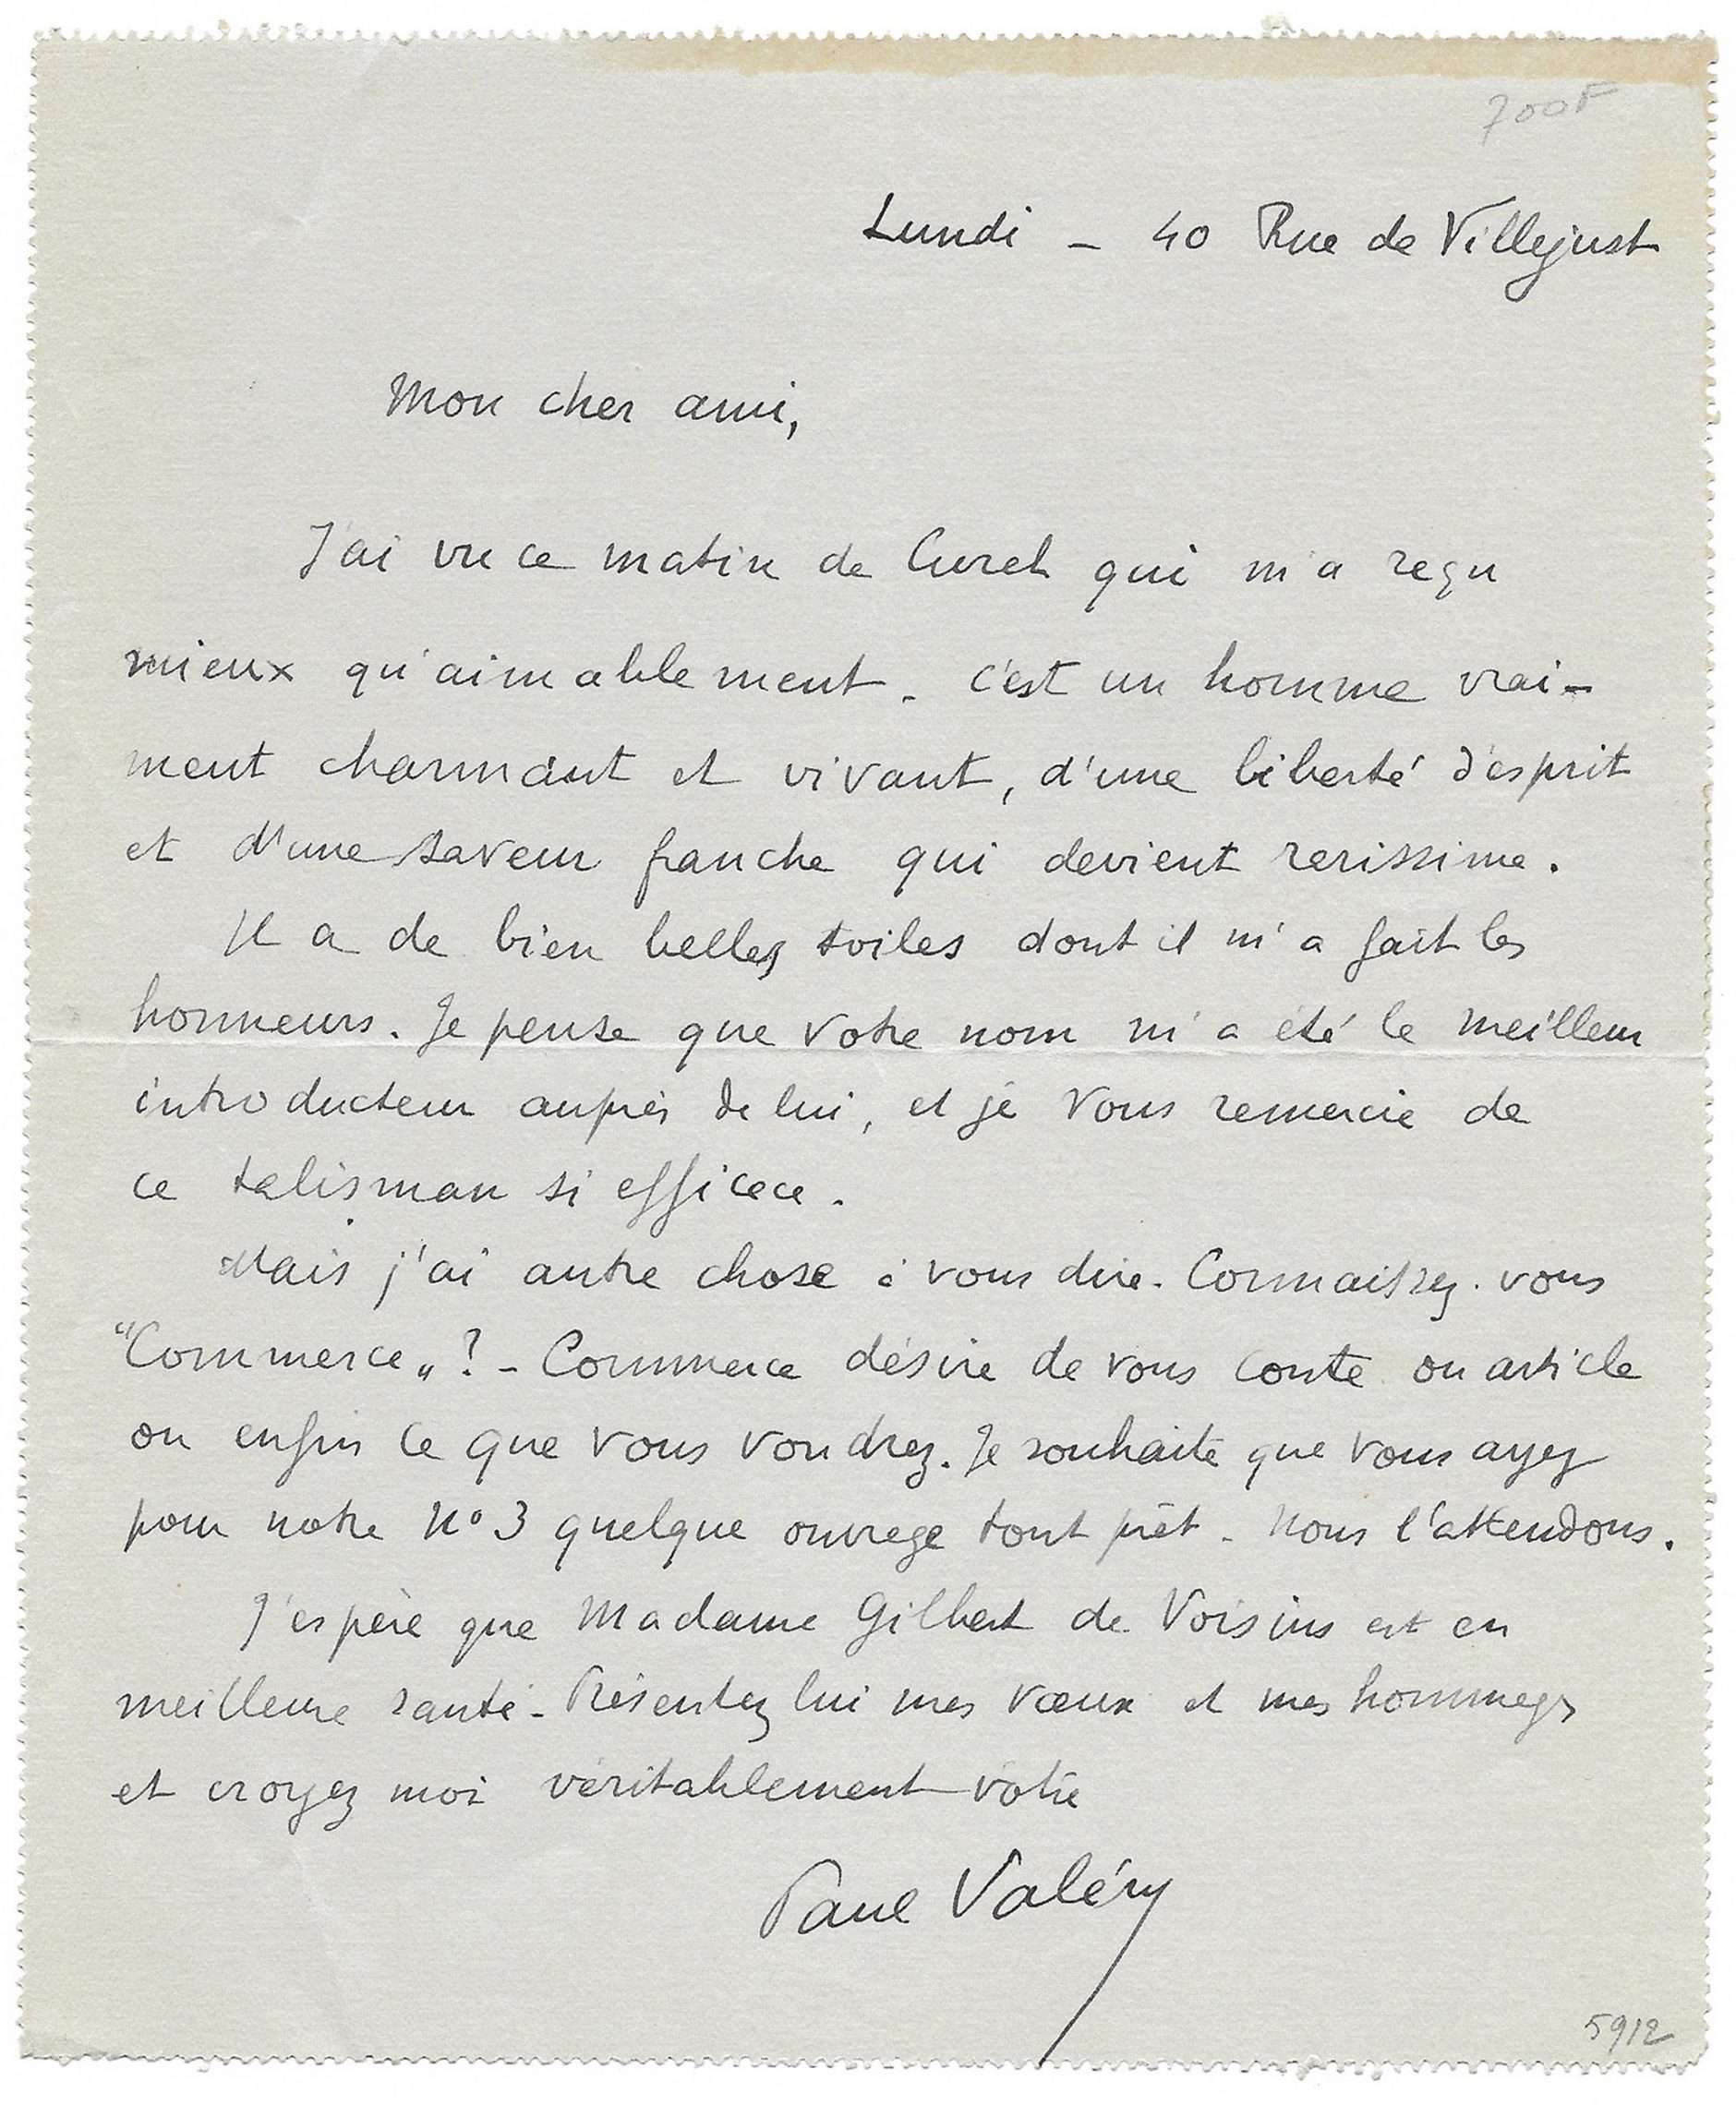 700F
Lundi – 40 Rue de Villejust
Mon cher ami,
J'ai vu ce matin de Curel qui m'a reçu
mieux qu'aimablement. C'est un homme vrai-
ment charmant et vivant, d'une liberté d'esprit
et d'une saveur franche qui devient rarissime.
Il a de bien belles toiles dont il m'a fait les
honneurs. Je pense que votre nom m'a été le meilleur
introducteur auprès de lui, et je vous remercie de
ce talisman si efficace.
Mais j'ai autre chose à vous dire. Connaissez-vous
"Commerce„ ? – Commerce désire de vous conte ou article
ou enfin ce que vous voudrez. Je souhaite que vous ayez
pour notre No 3 quelque ouvrage tout prêt – nous l'attendons.
J'espère que Madame Gilbert de Voisins est en
meilleure santé – Présentez lui mes vœux et mes hommages
et croyez moi véritablement vôtre
Paul Valéry
5912